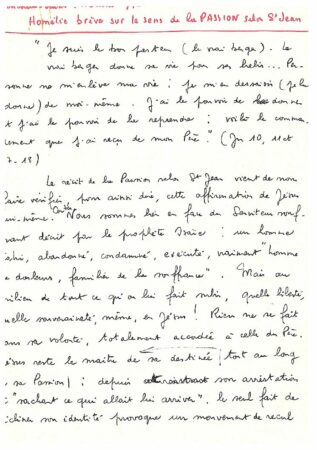 Homélie brève sur le sens de la PASSION selon St Jean
"Je suis le bon pasteur (le vrai berger). Le
vrai berger donne sa vie pour ses brebis... Per-
sonne ne m'enlève ma vie : je m'en dessaisis (je la
donne) de moi-même. J'ai le pouvoir de la donner
et j'ai le pouvoir de la reprendre : voilà le comman-
dement que j'ai reçu de mon Père". (Jn 10, 11 et
7-18)
Le récit de la Passion selon St Jean vient de nous
faire vérifier, pour ainsi dire, cette affirmation de Jésus
lui-même. Nous sommes bien en face du Serviteur souf-
frant décrit par le prophète Isaïe : un homme
trahi, abandonné, condamné, exécuté, vraiment "homme
de douleurs, familier de la souffrance". Mais au
milieu de tout ce qu'on lui fait subir, quelle liberté,
quelle souveraineté, même, en Jésus ! Rien ne se fait
sans sa volonté, totalement accordée à celle du Père.
Jésus reste le maître de sa destinée tout au long
de sa Passion : depuis son arrestation
"sachant ce qui allait lui arriver". Le seul fait de
décliner son identité provoque un mouvement de recul